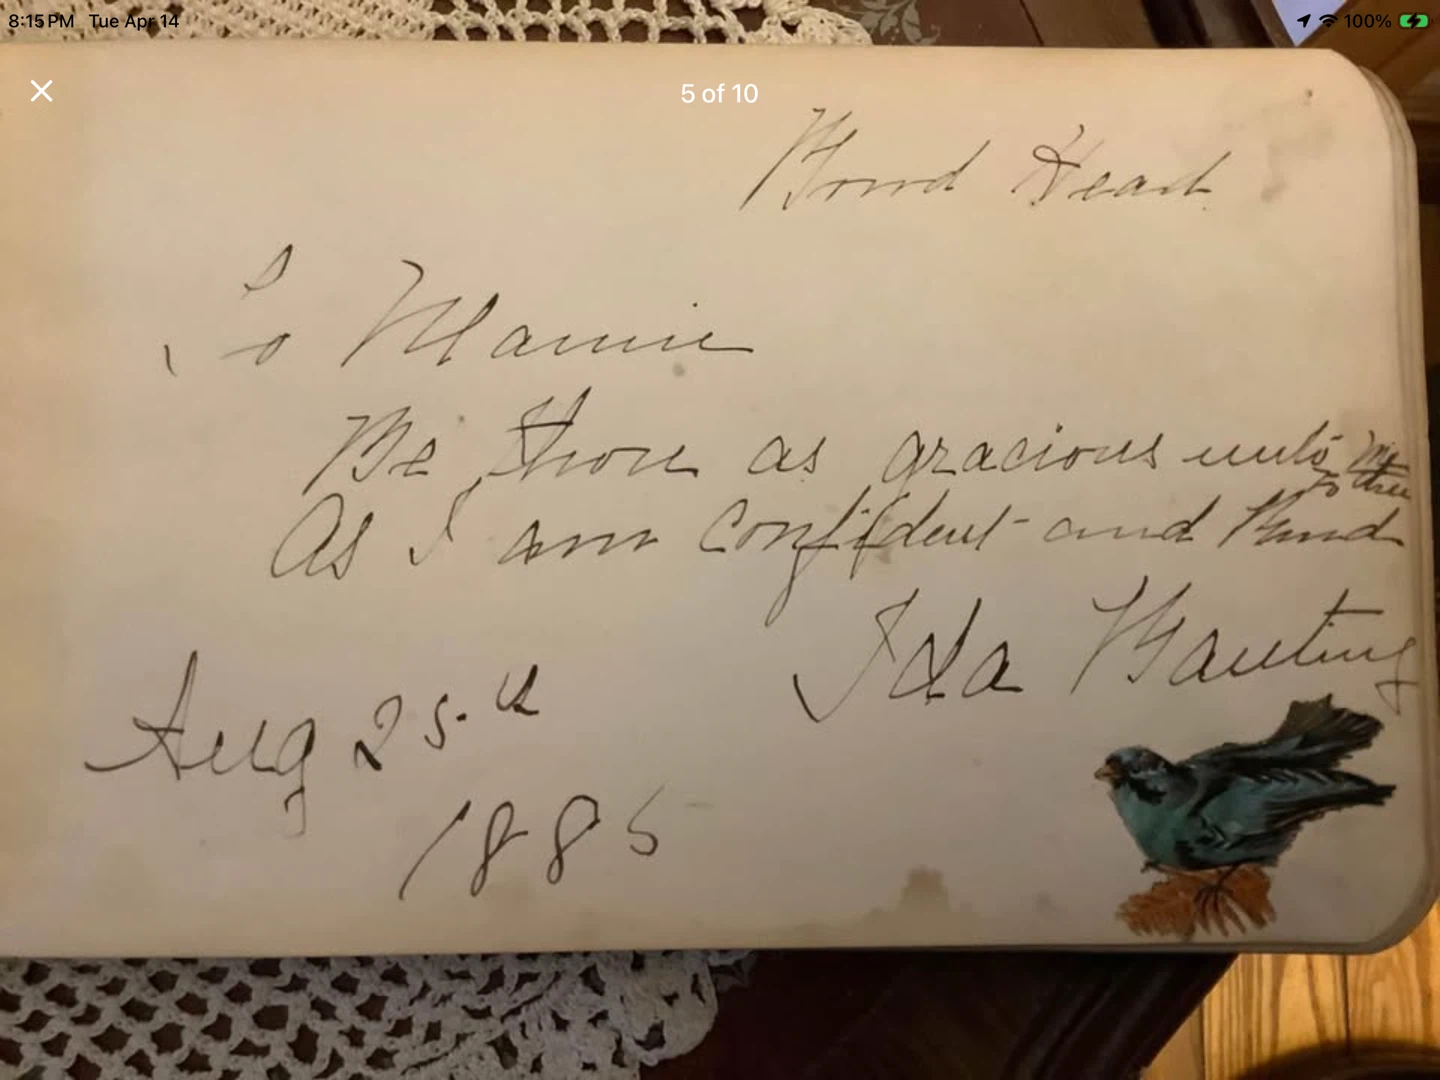 8:15 PM Tue Apr 14
100%
5 of 10
Bond Head
To Mamie
Be thou as gracious unto me
As I am confident and kind to thee
Ida Banting
Aug 25th
1885